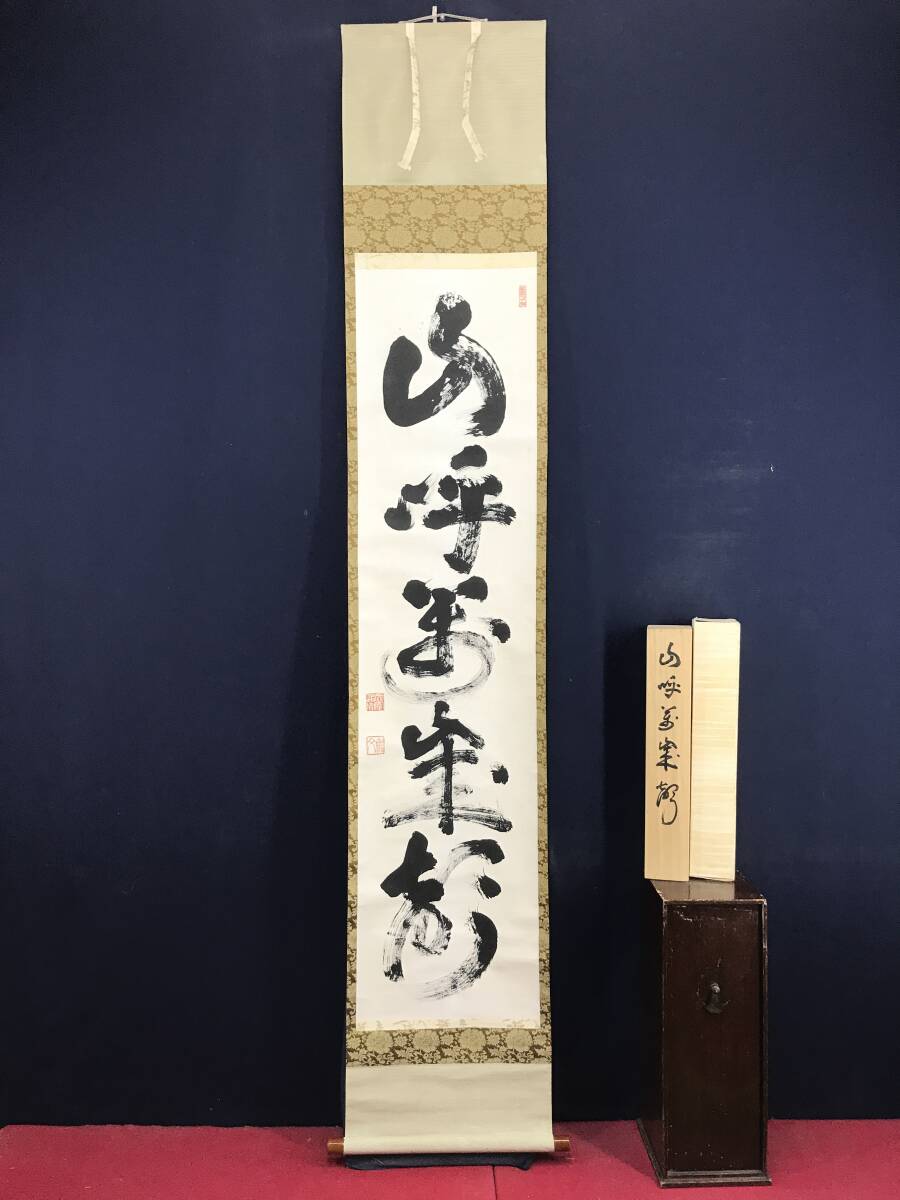 山呼萬歳聲
山呼萬歳聲